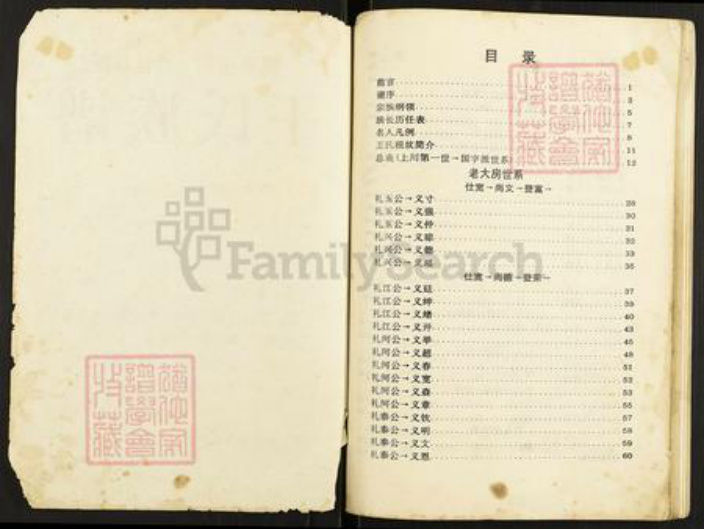 目 录
前言 1
谱序 3
宗族纲领 5
族长历任表 7
名人凡例 8
王氏根故简介 11
总表(上川第一世→国字派世系) 12
老大房世系
仕宽→尚文→登富→
礼东公→义寸 28
礼东公→义强 30
礼东公→义仲 31
礼兴公→义 32
礼兴公→义 33
礼兴公→义 35
仕宽→尚德→登荣→
礼江公→义 37
礼江公→义绅 39
礼江公→义 40
礼江公→义升 43
礼河公→义举 45
礼河公→义超 48
礼河公→义春 51
礼河公→义宽 52
礼河公→义森 53
礼河公→义章 55
礼泰公→义钦 57
礼泰公→义明 58
礼泰公→义文 59
礼泰公→义恩 60
FamilySearch